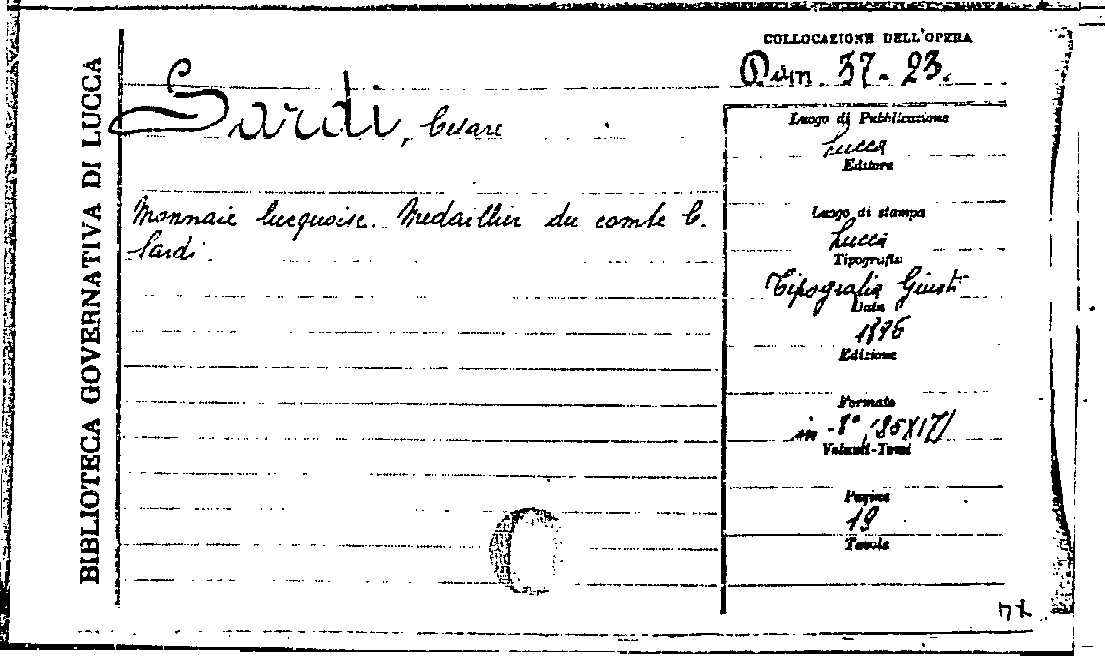 BIBLIOTECA GOVERNATIVA DI LUCCA
Sardi, Cesare
Monnaie lucquoise. Medaillier du comte C.
Sardi.
COLLOCAZIONE DELL'OPERA
37-23.
Luogo di Pubblicazione
Lucca
Editore
Luogo di stampa
Lucca
Tipografia
Tipografia Giusti
Data
1896
Edizione
Formato
in-8°
Volumi-Tomi
Pagine
19
Tavole